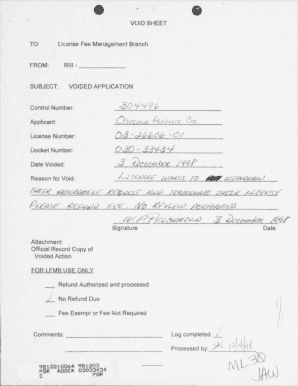 VOID SHEET
TO: License Fee Management Branch
FROM: RIII -
SUBJECT: VOIDED APPLICATION
Control Number: 304496
Applicant: Osceola Co.
License Number: 03-26606-01
Docket Number: 030-33434
Date Voided: 3 December 1998
Reason for Void: LICENSEE WANTS TO WITHDRAW
THEIR AMENDMENT REQUEST AND TERMINATE THEIR LICENSE
PLEASE REFUND FEE. NO REVIEW PERFORMED
3 December 1998
Signature Date
Attachment:
Official Record Copy of
Voided Action
FOR LFMB USE ONLY
Refund Authorized and processed
No Refund Due
Fee Exempt or Fee Not Required
Comments: Log completed
Processed by
9812210064 981203
PDR ADOCK 03033434
C PDR